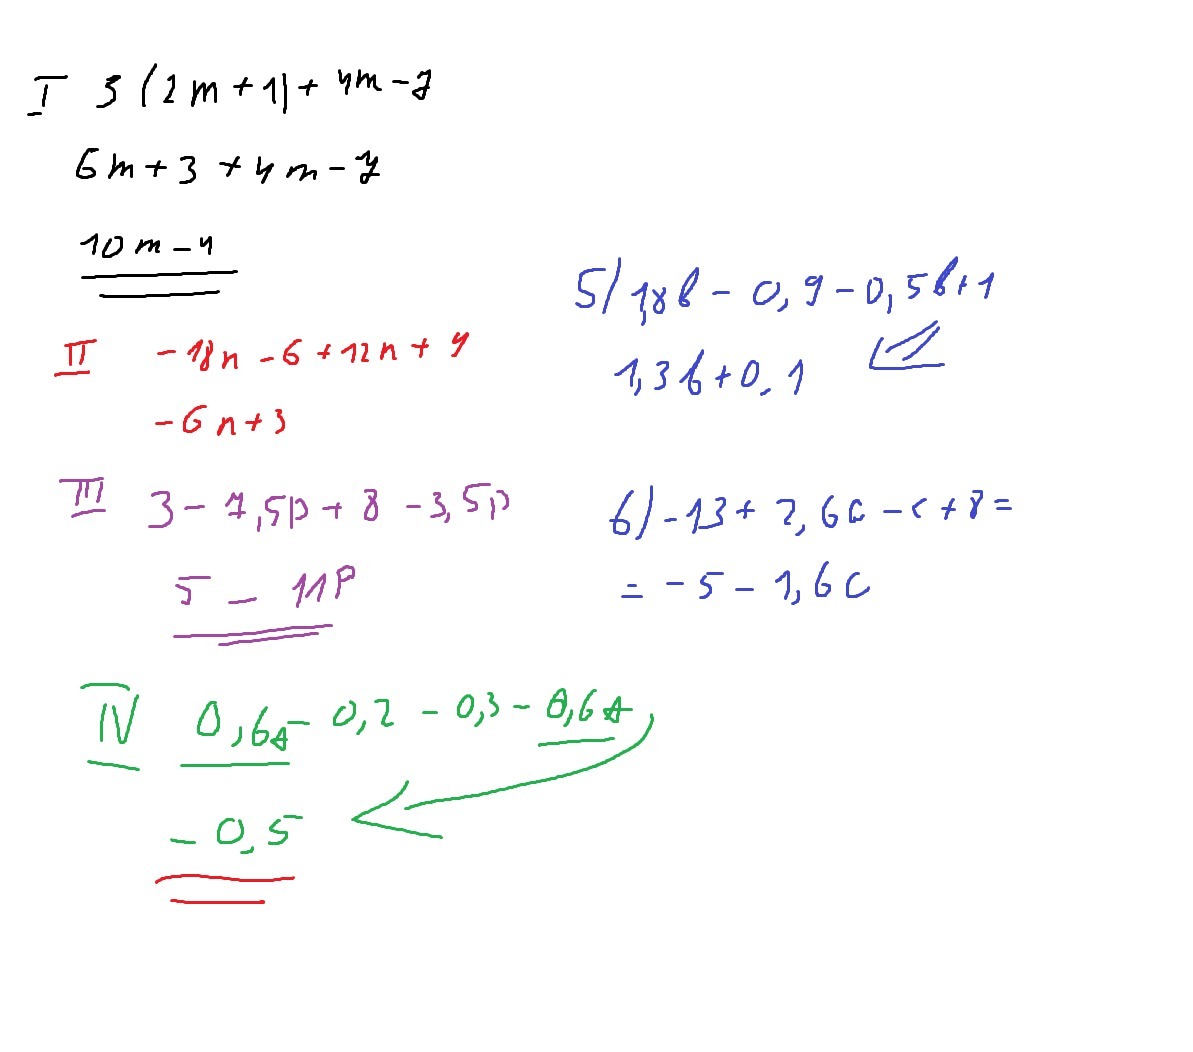 I 3(2m+1)+4m-7
6m+3+4m-7
10m-4
II -18n-6+12n+9
-6n+3
III 3-7,5p+8-3,5p
5-11p
IV 0,6a-0,2-0,3-0,6a
-0,5
5) 1,8b-0,9-0,5b+1
1,3b+0,1
6) -13+2,6c-c+8=
= -5-1,6c